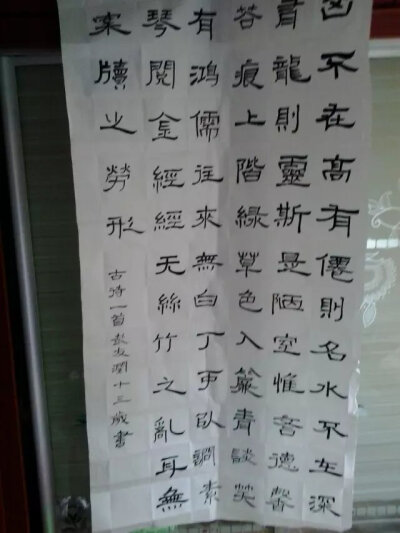 山不在高有僊則名水不在深
有龍則靈斯是陋室惟吾德馨
苔痕上階綠草色入簾青談笑
有鴻儒往來無白丁可以調素
琴閱金經經无絲竹之亂耳無
案牘之勞形
古诗一首彭友潤十三歲書